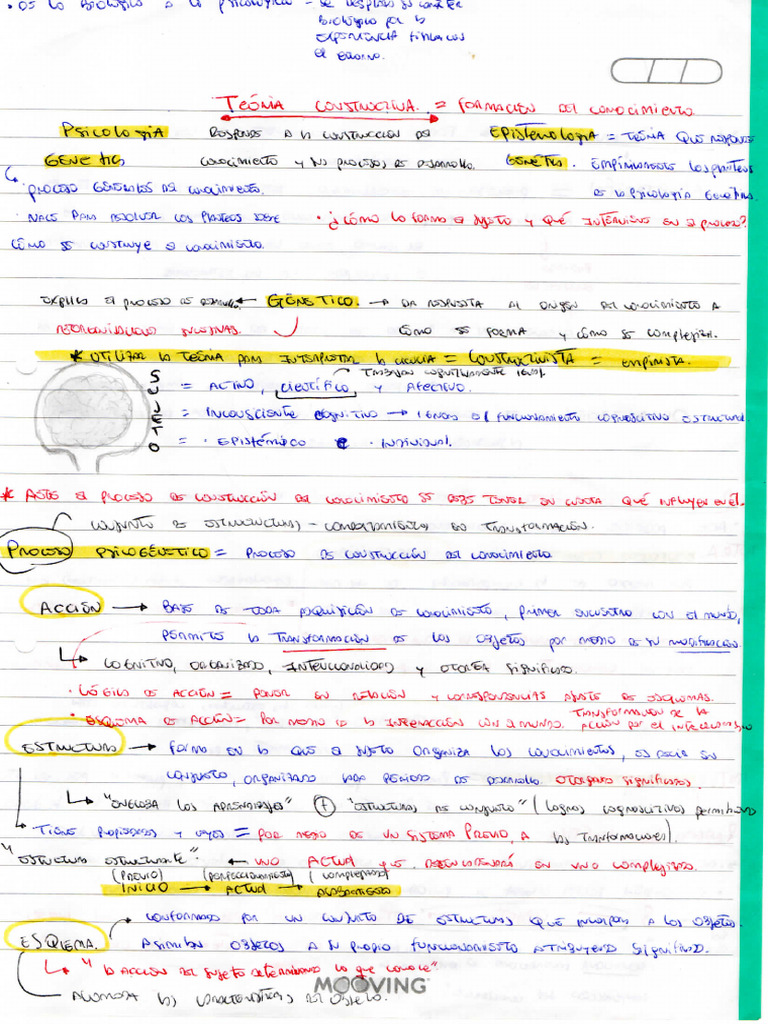 • DE LO BIOLÓGICO A LO PSICOLÓGICO – SE DESPRENDE SU CARÁCTER
BIOLÓGICO POR LA
EXPERIENCIA FÍSICA CON
EL ENTORNO.
TEORIA CONSTRUCTIVA = FORMACIÓN DEL CONOCIMIENTO
PSICOLOGIA RESPONDE A LA CONSTRUCCIÓN DEL EPISTEMOLOGIA = TEORIA QUE RESPONDE
GENETICA CONOCIMIENTO Y SUS PROCESOS DE DESARROLLO. GENÉTICA. EMPIRICAMENTE LOS PLANTEOS
PROCESO GENERALES DEL CONOCIMIENTO. DE LA PSICOLOGIA GENÉTICA.
NACE PARA RESOLVER LOS PLANTEOS SOBRE • ¿CÓMO LO FORMA EL SUJETO Y QUÉ INTERVIENE EN EL PROCESO?
CÓMO SE CONSTRUYE EL CONOCIMIENTO.
EXPLICA EL PROCESO DE DESARROLLO ← GÉNETICO. → DA RESPUESTA AL ORIGEN DEL CONOCIMIENTO A
REORGANIZACIONES SUCESIVAS. CÓMO SE FORMA Y CÓMO SE COMPLEJIZA.
* UTILIZAR LA TEORIA PARA INTERPRETAR LA CIENCIA = CONSTRUCTIVISTA = EMPIRISTA.
TRABAJAN COGNITIVAMENTE IGUAL
SUJETO = ACTIVO, CIENTÍFICO, Y AFECTIVO.
= INCONSCIENTE COGNITIVO → EL FUNCIONAMIENTO COGNOSCITIVO ESTRUCTURAL
= • EPISTÉMICO E • INDIVIDUAL.
* ANTE EL PROCESO DE CONSTRUCCIÓN DEL CONOCIMIENTO SE DEBE TENER EN CUENTA QUÉ INFLUYE EN ÉL.
CONJUNTO DE ESTRUCTURAS – COMPORTAMIENTOS EN TRANSFORMACIÓN.
PROCESO PSICOGÉNETICO = PROCESO DE CONSTRUCCIÓN DEL CONOCIMIENTO
ACCIÓN → BASE DE TODA ADQUISICIÓN DE CONOCIMIENTO, PRIMER ENCUENTRO CON EL MUNDO,
PERMITE LA TRANSFORMACIÓN DE LOS OBJETOS POR MEDIO DE SU MODIFICACIÓN.
COGNITIVO, ORGANIZADO, INTENCIONALIDAD Y OTORGA SIGNIFICADO.
• LÓGICA DE ACCIÓN = PONER EN RELACIÓN Y CORRESPONDENCIAS AJUSTE DE ESQUEMAS.
• ESQUEMA DE ACCIÓN = POR MEDIO DE LA INTERACCIÓN CON EL MUNDO. TRANSFORMACIÓN DE LA
ACCIÓN POR EL INTERCAMBIO
ESTRUCTURA → FORMA EN LA QUE EL SUJETO ORGANIZA LOS CONOCIMIENTOS, ES DECIR SU
CONJUNTO, ORGANIZADO CADA PERIODO DE DESARROLLO. OTORGANDO SIGNIFICADOS.
"ENGLOBA LOS APRENDIZAJES" + "ESTRUCTURAS DE CONJUNTO" (LOGROS COGNOSCITIVOS PERMITIENDO
TIENE PROPIEDADES Y LEYES = POR MEDIO DE UN SISTEMA PREVIO, A LAS TRANSFORMACIONES).
"ESTRUCTURA ESTRUCTURANTE". ← UNO ACTUAL QUE DESENCADENARÁ EN UNO COMPLEJIZADO.
(PREVIO) (PERFECCIONAMIENTO) (COMPLEJIDAD)
INICIO → ACTUAL →
ESQUEMA. CONFORMADO POR UN CONJUNTO DE ESTRUCTURAS QUE INCORPORA A LOS OBJETOS.
ASIMILAN OBJETOS A SU PROPIO FUNCIONAMIENTO ATRIBUYENDO SIGNIFICADO.
"LA ACCIÓN DEL SUJETO DETERMINANDO LO QUE CONOCE"
ACOMODA LAS CARACTERISTICAS DEL OBJETO.
MOOVING